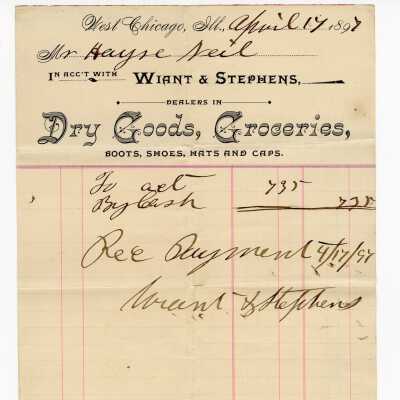 West Chicago, Ill., April 17 1897
Mr Hayse Neil
IN ACC'T WITH WIANT & STEPHENS,
DEALERS IN
Dry Goods, Groceries,
BOOTS, SHOES, HATS AND CAPS.
To act 735
By Cash 735
Rec Payment 4/17/97
Wiant & Stephens